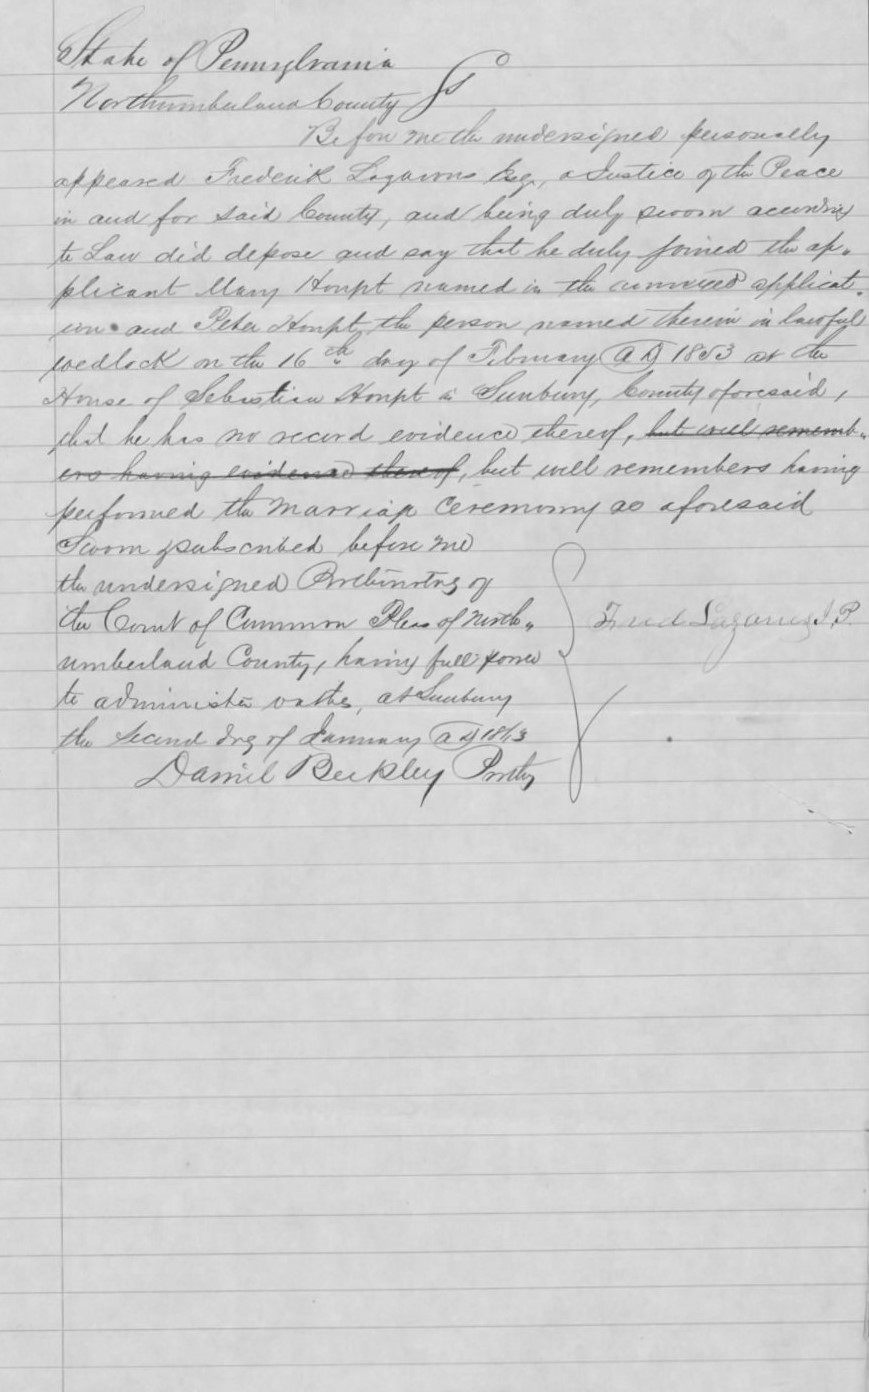 State of Pennsylvania
Northumberland County SS
Before me the undersigned personally
appeared Frederik Lazarus Esq., a Justice of the Peace
in and for said County, and being duly sworn according
to Law did depose and say that he duly joined the ap„
plicant Mary Houpt named in the annexed applicat„
ion and Peter Houpt, the person named therein in lawful
wedlock on the 16th day of February AD 1853 at the
House of Sebastian Houpt in Sunbury, County aforesaid,
that he has no record evidence thereof, but well rememb„
ers having evidence thereof, but well remembers having
performed the Marriage Ceremony as aforesaid
Sworn & subscribed before me
the undersigned Prothonotary of
the Court of Common Pleas of North„
umberland County, having full power
to administer oaths, at Sunbury
the Second day of January AD 1863
Daniel Beckley Prothy
Fred Lazarus J.P.